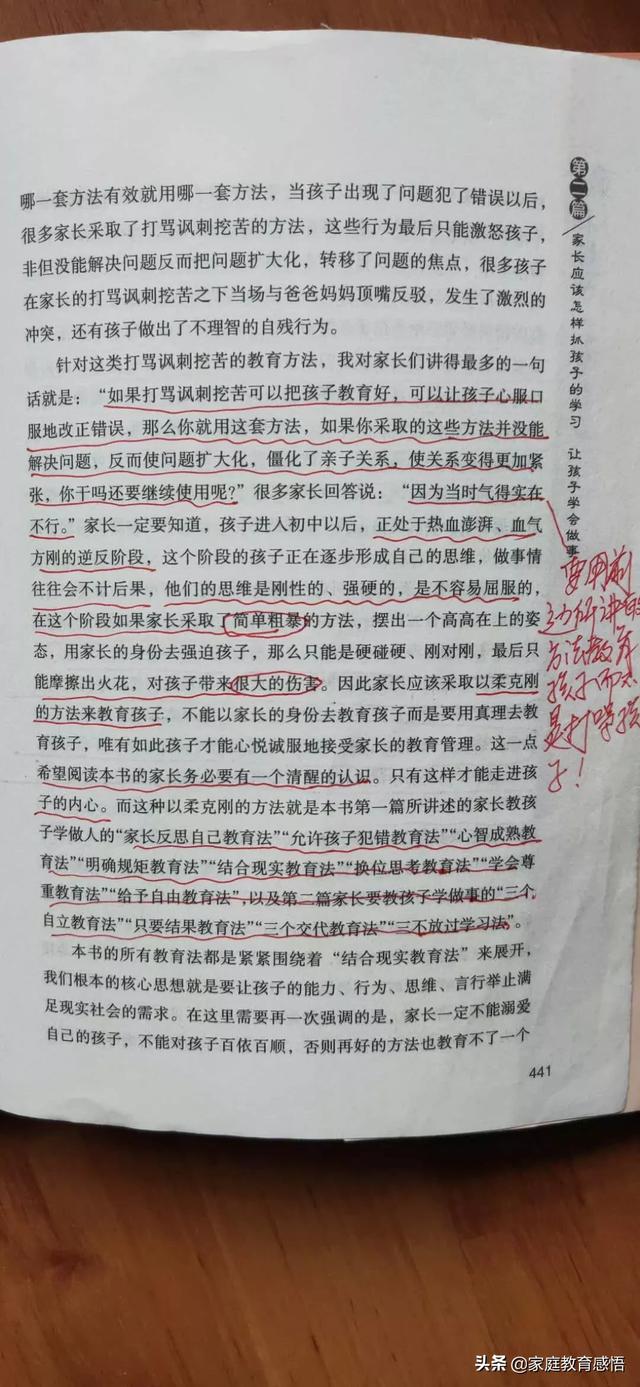 哪一套方法有效就用哪一套方法，当孩子出现了问题犯了错误以后，
很多家长采取了打骂讽刺挖苦的方法，这些行为最后只能激怒孩子，
非但没能解决问题反而把问题扩大化，转移了问题的焦点，很多孩子
在家长的打骂讽刺挖苦之下当场与爸爸妈妈顶嘴反驳，发生了激烈的
冲突，还有孩子做出了不理智的自残行为。
针对这类打骂讽刺挖苦的教育方法，我对家长们讲得最多的一句
话就是：“如果打骂讽刺挖苦可以把孩子教育好，可以让孩子心服口
服地改正错误，那么你就用这套方法，如果你采取的这些方法并没能
解决问题，反而使问题扩大化，僵化了亲子关系，使关系变得更加紧
张，你干吗还要继续使用呢？”很多家长回答说：“因为当时气得实在
不行。”家长一定要知道，孩子进入初中以后，正处于热血澎湃、血气
方刚的逆反阶段，这个阶段的孩子正在逐步形成自己的思维，做事情
往往会不计后果，他们的思维是刚性的、强硬的，是不容易屈服的，
在这个阶段如果家长采取了简单粗暴的方法，摆出一个高高在上的姿
态，用家长的身份去强迫孩子，那么只能是硬碰硬、刚对刚，最后只
能摩擦出火花，对孩子带来很大的伤害。因此家长应该采取以柔克刚
的方法来教育孩子，不能以家长的身份去教育孩子而是要用真理去教
育孩子，唯有如此孩子才能心悦诚服地接受家长的教育管理。这一点
希望阅读本书的家长务必要有一个清醒的认识。只有这样才能走进孩
子的内心。而这种以柔克刚的方法就是本书第一篇所讲述的家长教孩
子学做人的“家长反思自己教育法”“允许孩子犯错教育法”“心智成熟教
育法”“明确规矩教育法”“结合现实教育法”“换位思考教育法”“学会尊
重教育法”“给予自由教育法”，以及第二篇家长要教孩子学做事的“三个
自立教育法”“只要结果教育法”“三个交代教育法”“三不放过学习法”。
本书的所有教育法都是紧紧围绕着“结合现实教育法”来展开，
我们根本的核心思想就是要让孩子的能力、行为、思维、言行举止满
足现实社会的需求。在这里需要再一次强调的是，家长一定不能溺爱
自己的孩子，不能对孩子百依百顺，否则再好的方法也教育不了一个
441
第二篇
家长应该怎样抓孩子的学习 让孩子学会做事
要用前
方法教育
孩子而不
是打骂孩
子！
头条 @家庭教育感悟